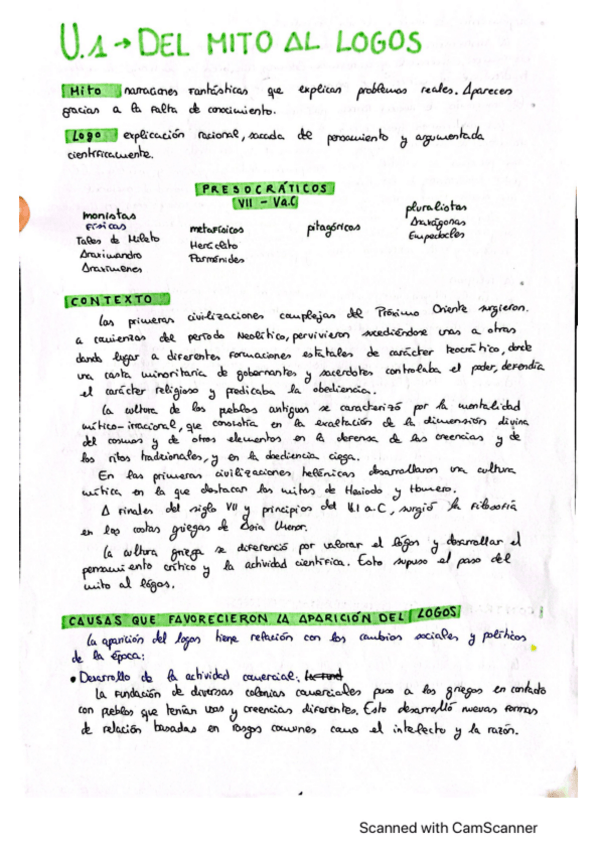 U.1 → DEL MITO AL LOGOS
Mito narraciones fantásticas que explican problemas reales. Aparecen
gracias a la falta de conocimiento.
Logo explicación racional, sacada del pensamiento y argumentada
científicamente.
PRESOCRÁTICOS
VII - V a.C
monistas
físicas
Tales de Mileto
Anaximandro
Anaxímenes
metafísicos
Heráclito
Parménides
pitagóricos
pluralistas
Anaxágoras
Empedocles
CONTEXTO
Las primeras civilizaciones complejas del Próximo Oriente surgieron
a comienzos del período Neolítico, pervivieron sucediéndose unas a otras
dando lugar a diferentes formaciones estatales de carácter teocrático, donde
una casta minoritaria de gobernantes y sacerdotes controlaba el poder, defendía
el carácter religioso y predicaba la obediencia.
La cultura de los pueblos antiguos se caracterizó por la mentalidad
mítico-irracional, que consistía en la exaltación de la dimensión divina
del cosmos y de otros elementos en la defensa de las creencias y de
los ritos tradicionales, y en la obediencia ciega.
En las primeras civilizaciones helénicas desarrollaron una cultura
mítica en la que destacan los mitos de Hesíodo y Homero.
A finales del siglo VII y principios del VI a.C, surgió la filosofía
en las costas griegas de Asia Menor.
La cultura griega se diferenció por valorar el lógos y desarrollar el
pensamiento crítico y la actividad científica. Esto supuso el paso del
mito al lógos.
CAUSAS QUE FAVORECIERON LA APARICIÓN DEL LOGOS
La aparición del logos tiene relación con los cambios sociales y políticos
de la época:
• Desarrollo de la actividad comercial:
La fundación de diversas colonias comerciales puso a los griegos en contacto
con pueblos que tenían usos y creencias diferentes. Esto desarrolló nuevas formas
de relación basadas en rasgos comunes como el intelecto y la razón.
Scanned with CamScanner